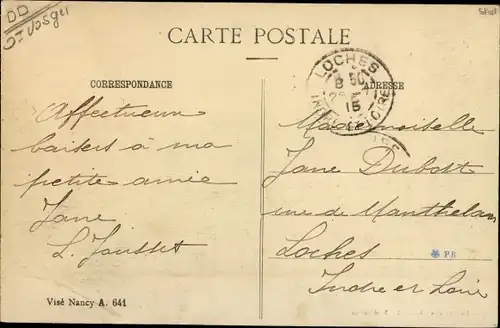 CARTE POSTALE
LOCHES
8 50
15
INDRE-ET-LOIRE
CORRESPONDANCE
ADRESSE
Affectueux
baisers à ma
petite amie
Jane
L. Jousset
Mademoiselle
Jane Dubost
rue de Manthelan
Loches
Indre et Loire
P R
Visé Nancy A. 641